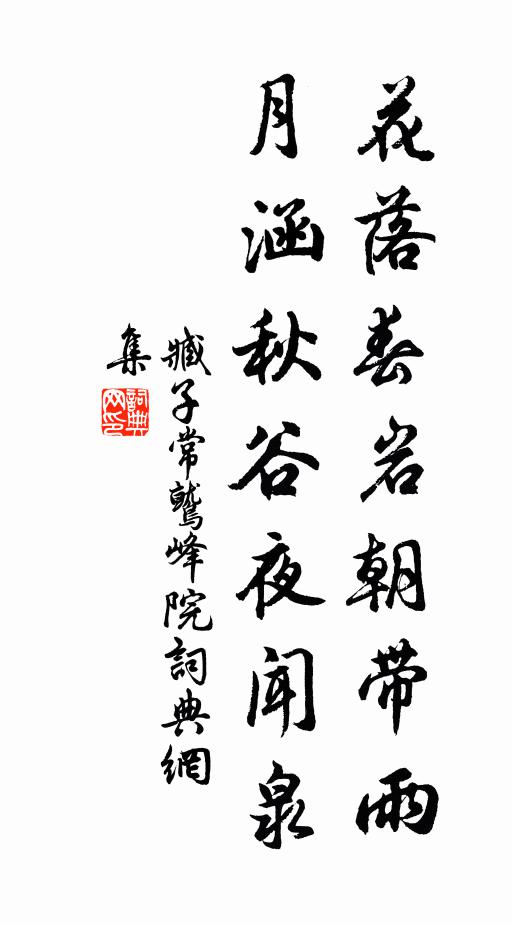 花落春岩朝带雨
月涵秋谷夜闻泉
臧子常鷲峰院詞典網
集
詞典
网印